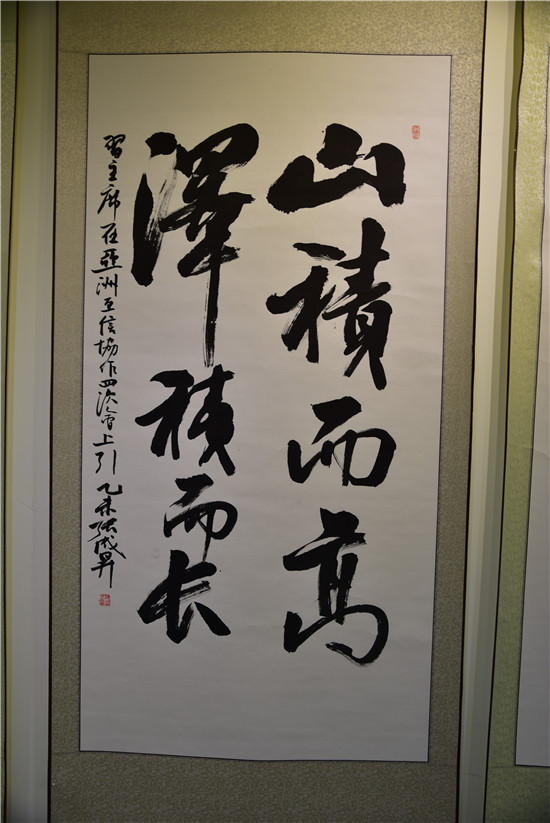 山積而高
澤積而长
習主席在亞洲互信協作四次會上引 乙未張成昇